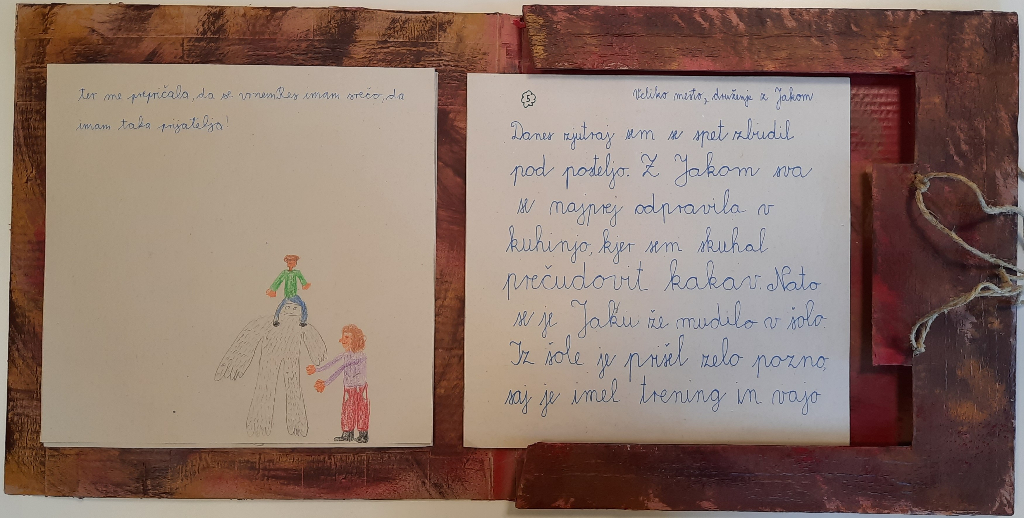 ter me prepričala, da se vrnem. Res imam srečo, da
imam taka prijatelja!
5
Veliko mesto, druženje z Jakom
Danes zjutraj sem se spet zbudil
pod posteljo. Z Jakom sva
se najprej odpravila v
kuhinjo, kjer sem skuhal
prečudovit kakav. Nato
se je Jaku že mudilo v šolo.
Iz šole je prišel zelo pozno,
saj je imel trening in vajo